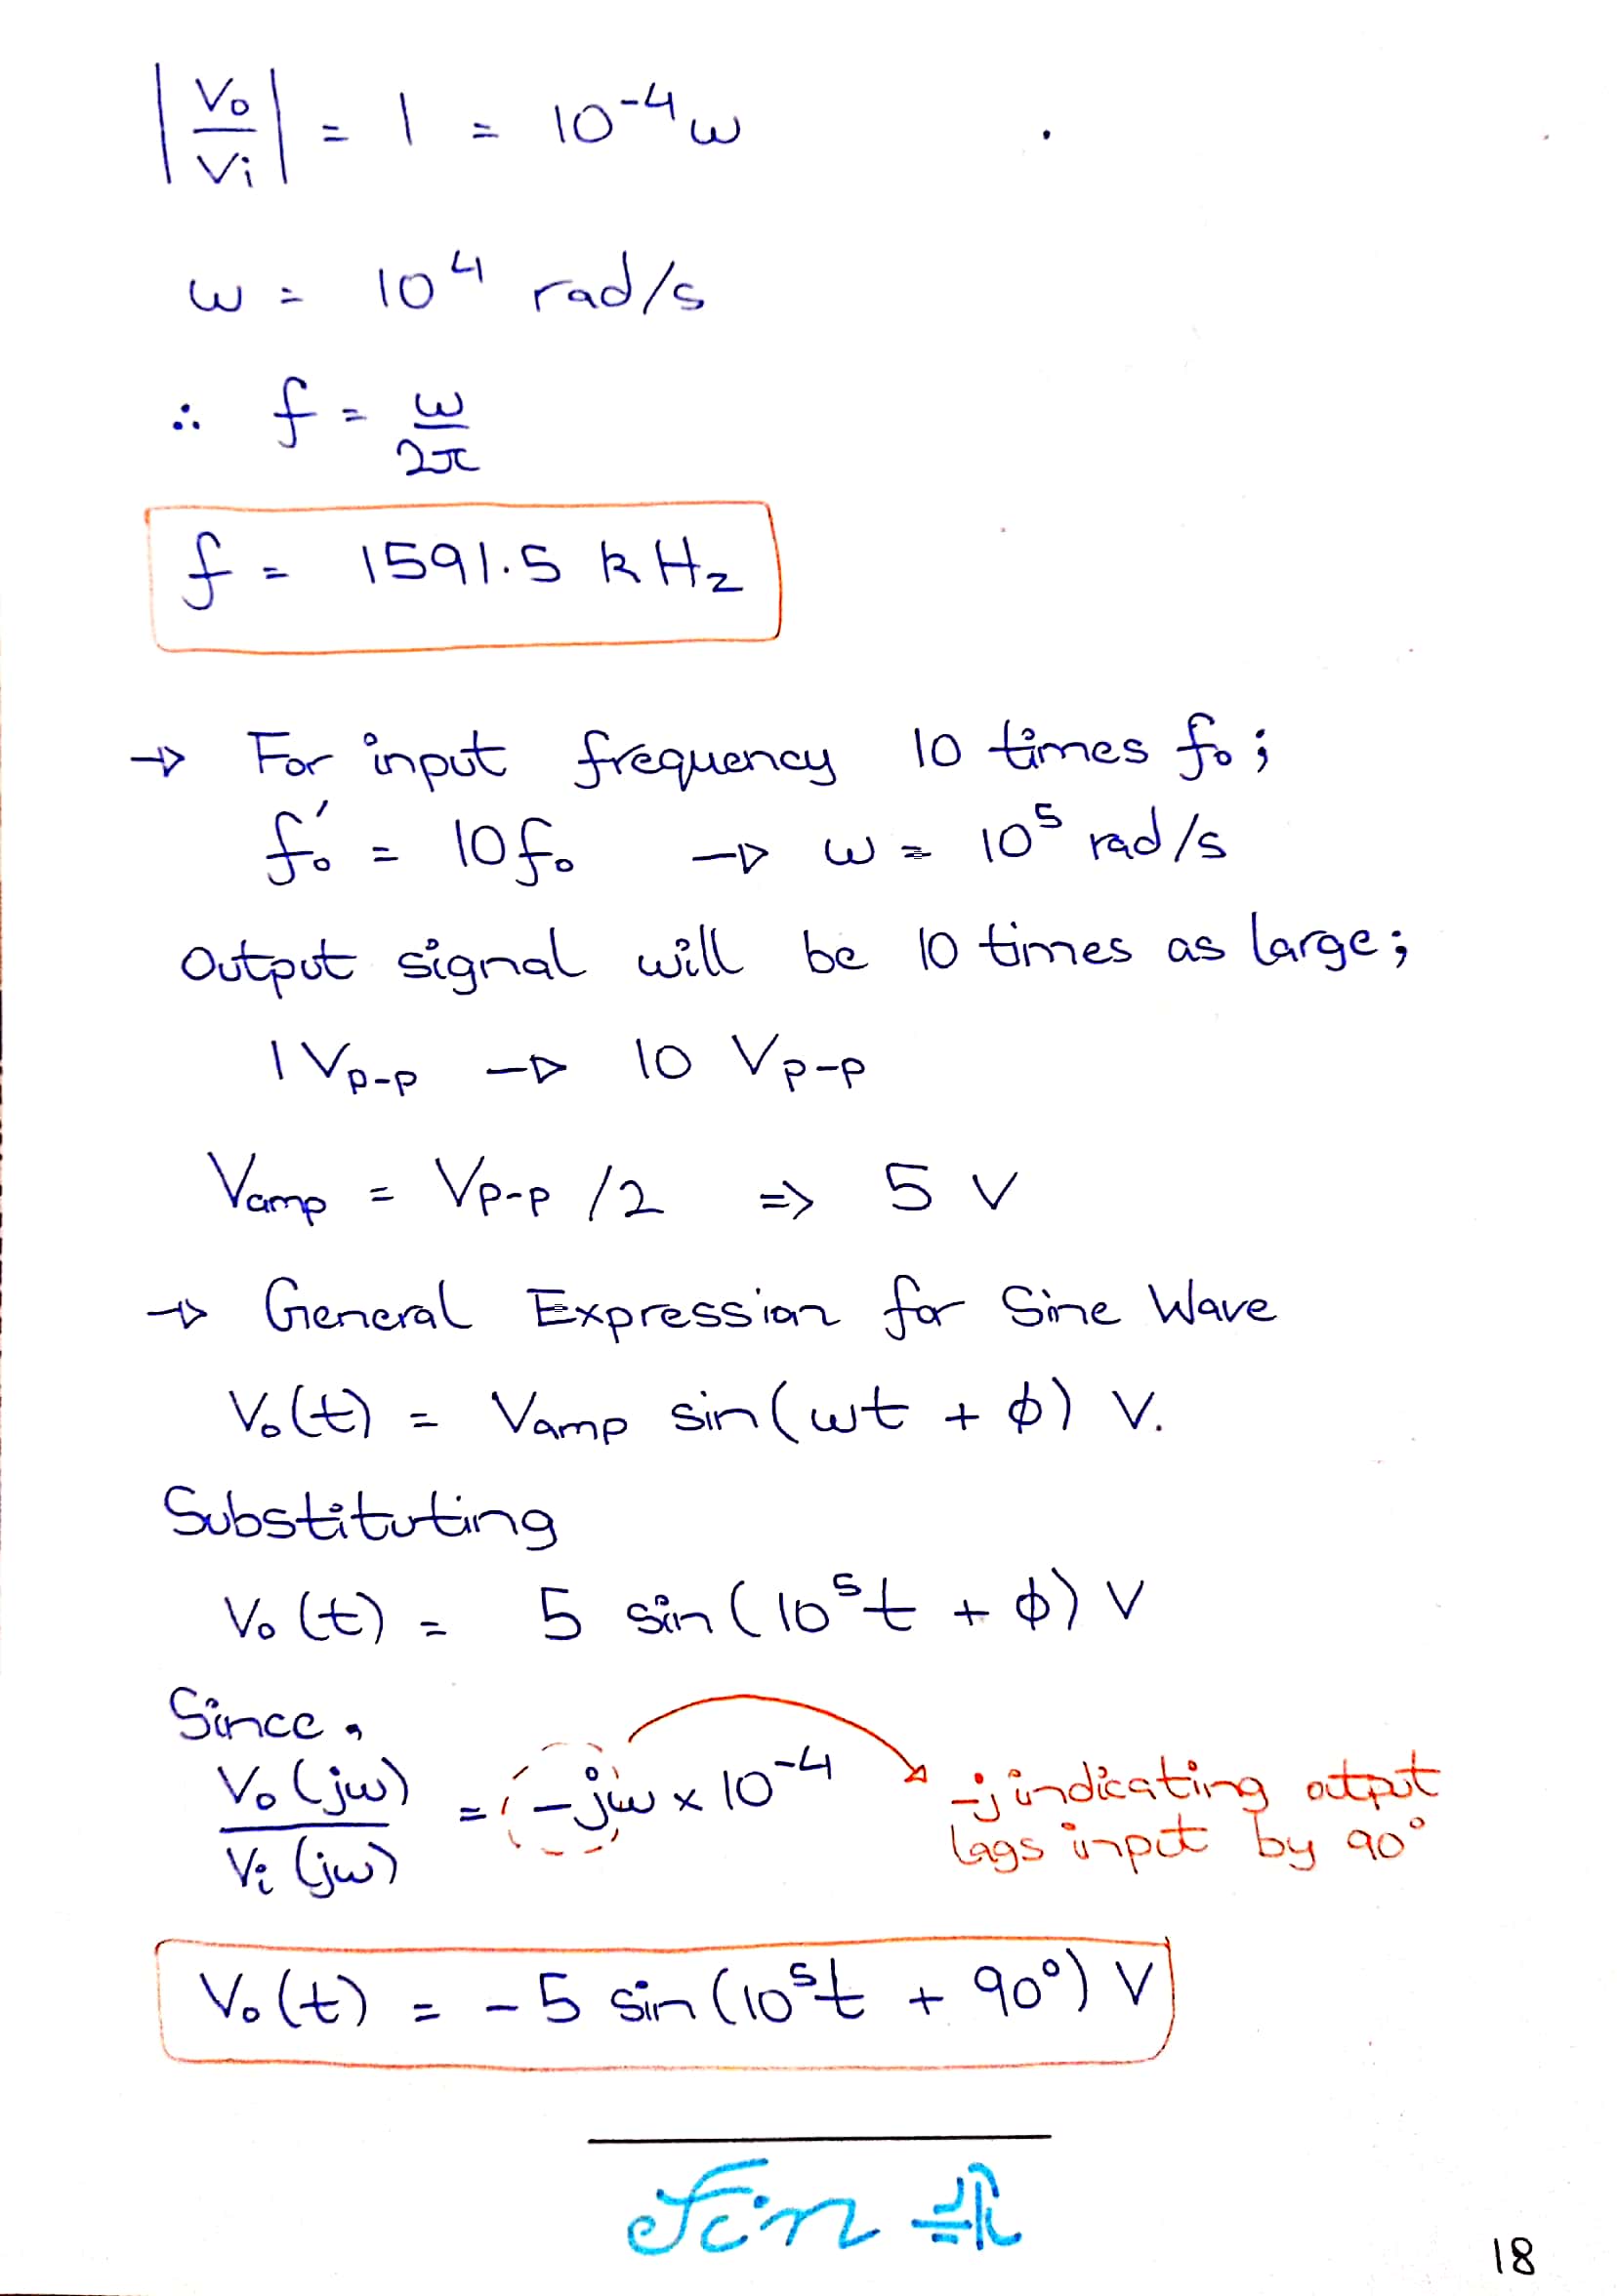 |Vo/Vi| = 1 = 10⁻⁴ω
ω = 10⁴ rad/s
∴ f = ω/2π
f = 1591.5 kHz
→ For input frequency 10 times fo;
fo' = 10fo → ω = 10⁵ rad/s
Output signal will be 10 times as large;
1 Vp-p → 10 Vp-p
Vamp = Vp-p /2 => 5 V
→ General Expression for Sine Wave
Vo(t) = Vamp sin(ωt + φ) V.
Substituting
Vo(t) = 5 sin(10⁵t + φ) V
Since,
Vo(jω)/Vi(jω) = -jω × 10⁻⁴
-j indicating output
lags input by 90°
Vo(t) = -5 sin(10⁵t + 90°) V
Fin
18